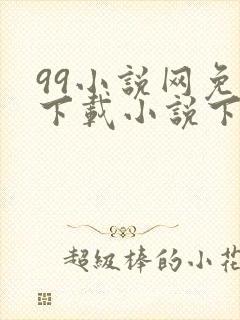 99小说网免
下载小说下
超级棒的小花